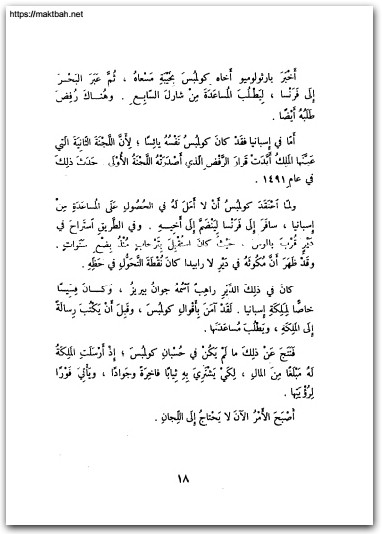 https://maktbah.net
أَخْبَرَ بارثولوميو أخاه كولمبس بِخَيْبَةِ مَسْعاهُ ، ثُمَّ عَبَرَ البَحْـرَ
إلى فَرَنْسا ، لِيَطْلُبَ المُساعَدَةَ مِنْ شارل السّابِـعِ . وهُنـاكَ رُفِضَ
طَلَبُهُ أَيْضًا .
أمّا في إسبانيا فَقَدْ كانَ كولمبُس نَفْسُهُ يائِسًا ؛ لِأَنَّ اللَّجْنَةَ الثّانِيَةَ الَّتي
عَيَّنَها المَلِكُ أَيَّدَتْ قَرارَ الرَّفْضِ الَّذي أَصْدَرَتْهُ اللَّجْنَةُ الأُولَى . حَدَثَ ذلِكَ
في عام ١٤٩١ .
ولمّا اعْتَقَدَ كولمبُس أَنْ لا أَمَلَ لَهُ في الحُصُولِ عَلى المُساعَدَةِ مِنْ
إسبانيا ، سافَرَ إلى فَرَنْسا لِيَنْضَمَّ إلى أَخيـهِ . وفي الطَّريقِ اسْتَراحَ في
دَيْرٍ قُرْبَ بالوس . حَيْثُ كانَ اسْتُقْبِلَ بِتَرْحابٍ مُنْذُ بِضْعِ سَنَواتٍ .
وقَدْ ظَهَرَ أَنَّ مُكُوثَهُ في دَيْرِ لا رابيدا كانَ نُقْطَةَ التَّحَوُّلِ في حَظِّهِ .
كانَ في ذلِكَ الدَّيْرِ راهِبٌ اسْمُهُ جوان بيريز ، وكـانَ قِسّيسًا
خاصًّا لِمَلِكَةِ إسبانيا . لَقَدْ آمَنَ بِأَقْوالِ كولمبُس ، وقَبِلَ أَنْ يَكْتُبَ رِسالَةً
إلى المَلِكَةِ ، ويَطْلُبَ مُساعَدَتَها .
فَنَتَجَ عَنْ ذلِكَ ما لَمْ يَكُنْ في حُسْبانِ كولمبُس ؛ إذْ أَرْسَلَتِ المَلِكَةُ
لَهُ مَبْلَغًا مِنَ المالِ ، لِكَيْ يَشْتَرِيَ بِهِ ثِيابًا فاخِرَةً وجَوادًا ، ويَأْتِيَ فَوْرًا
لِرُؤْيَتِها .
أَصْبَحَ الأَمْرُ الآنَ لا يَحْتاجُ إلى اللِّجانِ .
١٨